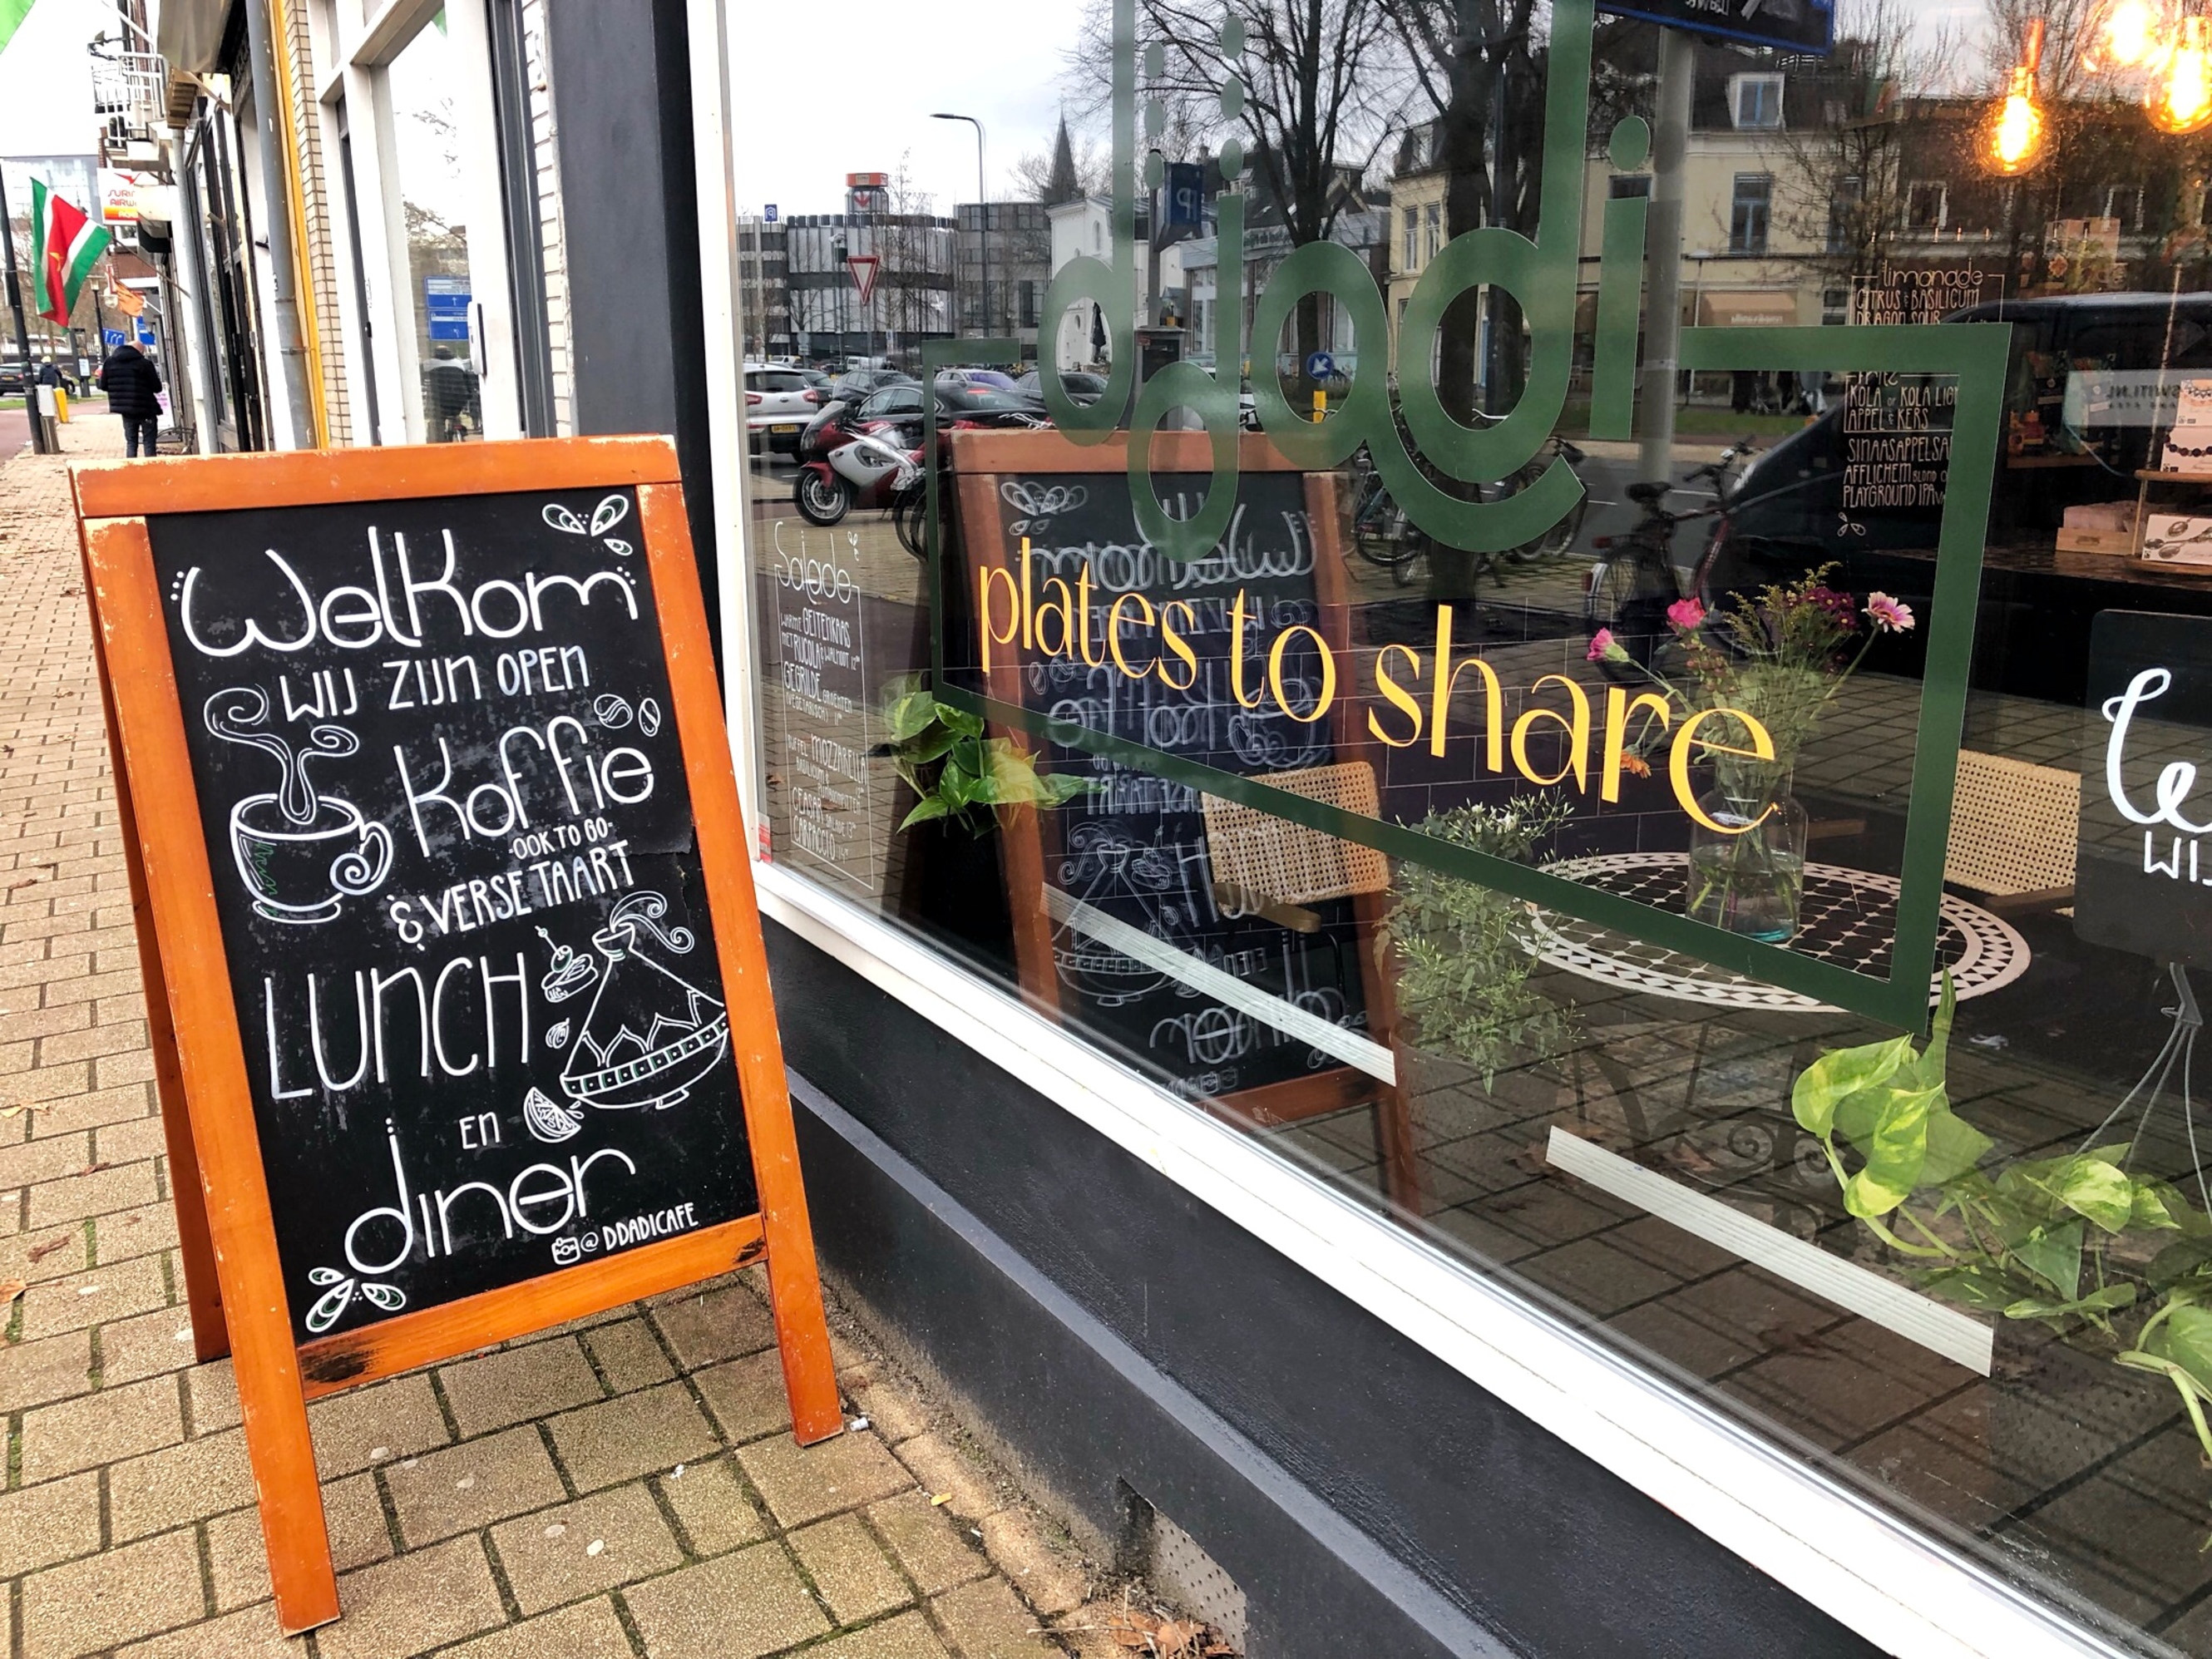 Welkom
WIJ ZIJN OPEN
Koffie
OOK TO GO
& VERSE TAART
LUNCH
EN
diner
@DDADICAFE
ddadi
plates to share
Salade
WARME GEITENKAAS
MET RUCOLA & WALNOOT
GEGRILDE GROENTEN
BUFFEL MOZZARELLA
CEASAR
CARPACCIO
limonade
CITRUS & BASILICUM
DRAGON SOUR
KOLA OF KOLA LIGHT
APPEL & KERS
SINAASAPPELSA
AFFLICHEM BLOND
PLAYGROUND IPA
We
WIJ
P